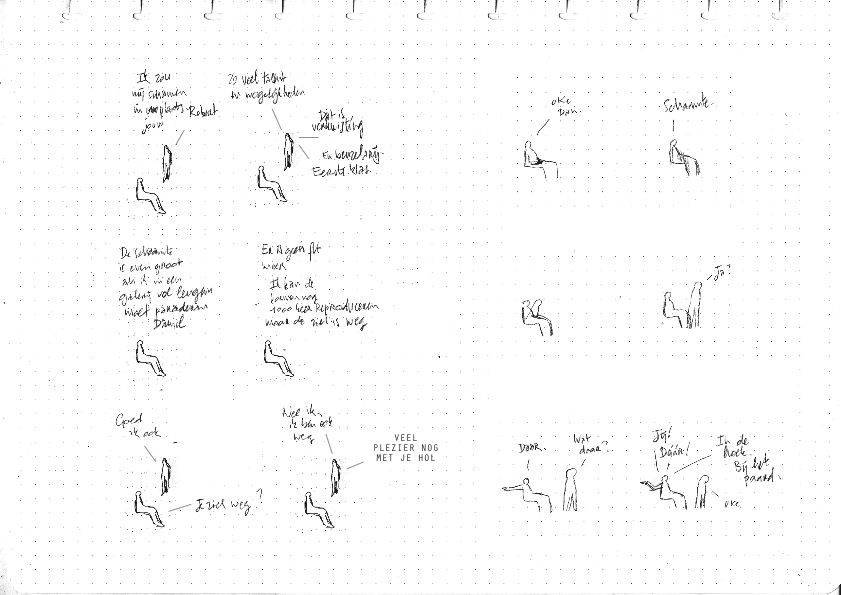 Ik zou
mij schamen
in
jouw
Robert
Zo veel talent
en mogelijkheden
Dat is
verkwisting
En
Eerste klas.
oke
Dan.
Schaamte.
De schaamte
is even groot
als ik in een
vol leugens
moet paraderen
Daniel
En is geen
meer
Ik kan de
1000 keer Reproduceren
maar de ziel is weg
Ja?
Goed
ik ook.
Je ziel weg?
Nee ik
ik ben ook
weg
VEEL
PLEZIER NOG
MET JE HOL
Daar.
Wat
daar?
Jij!
Dáár!
In de
hoek.
Bij het
paard.
oke